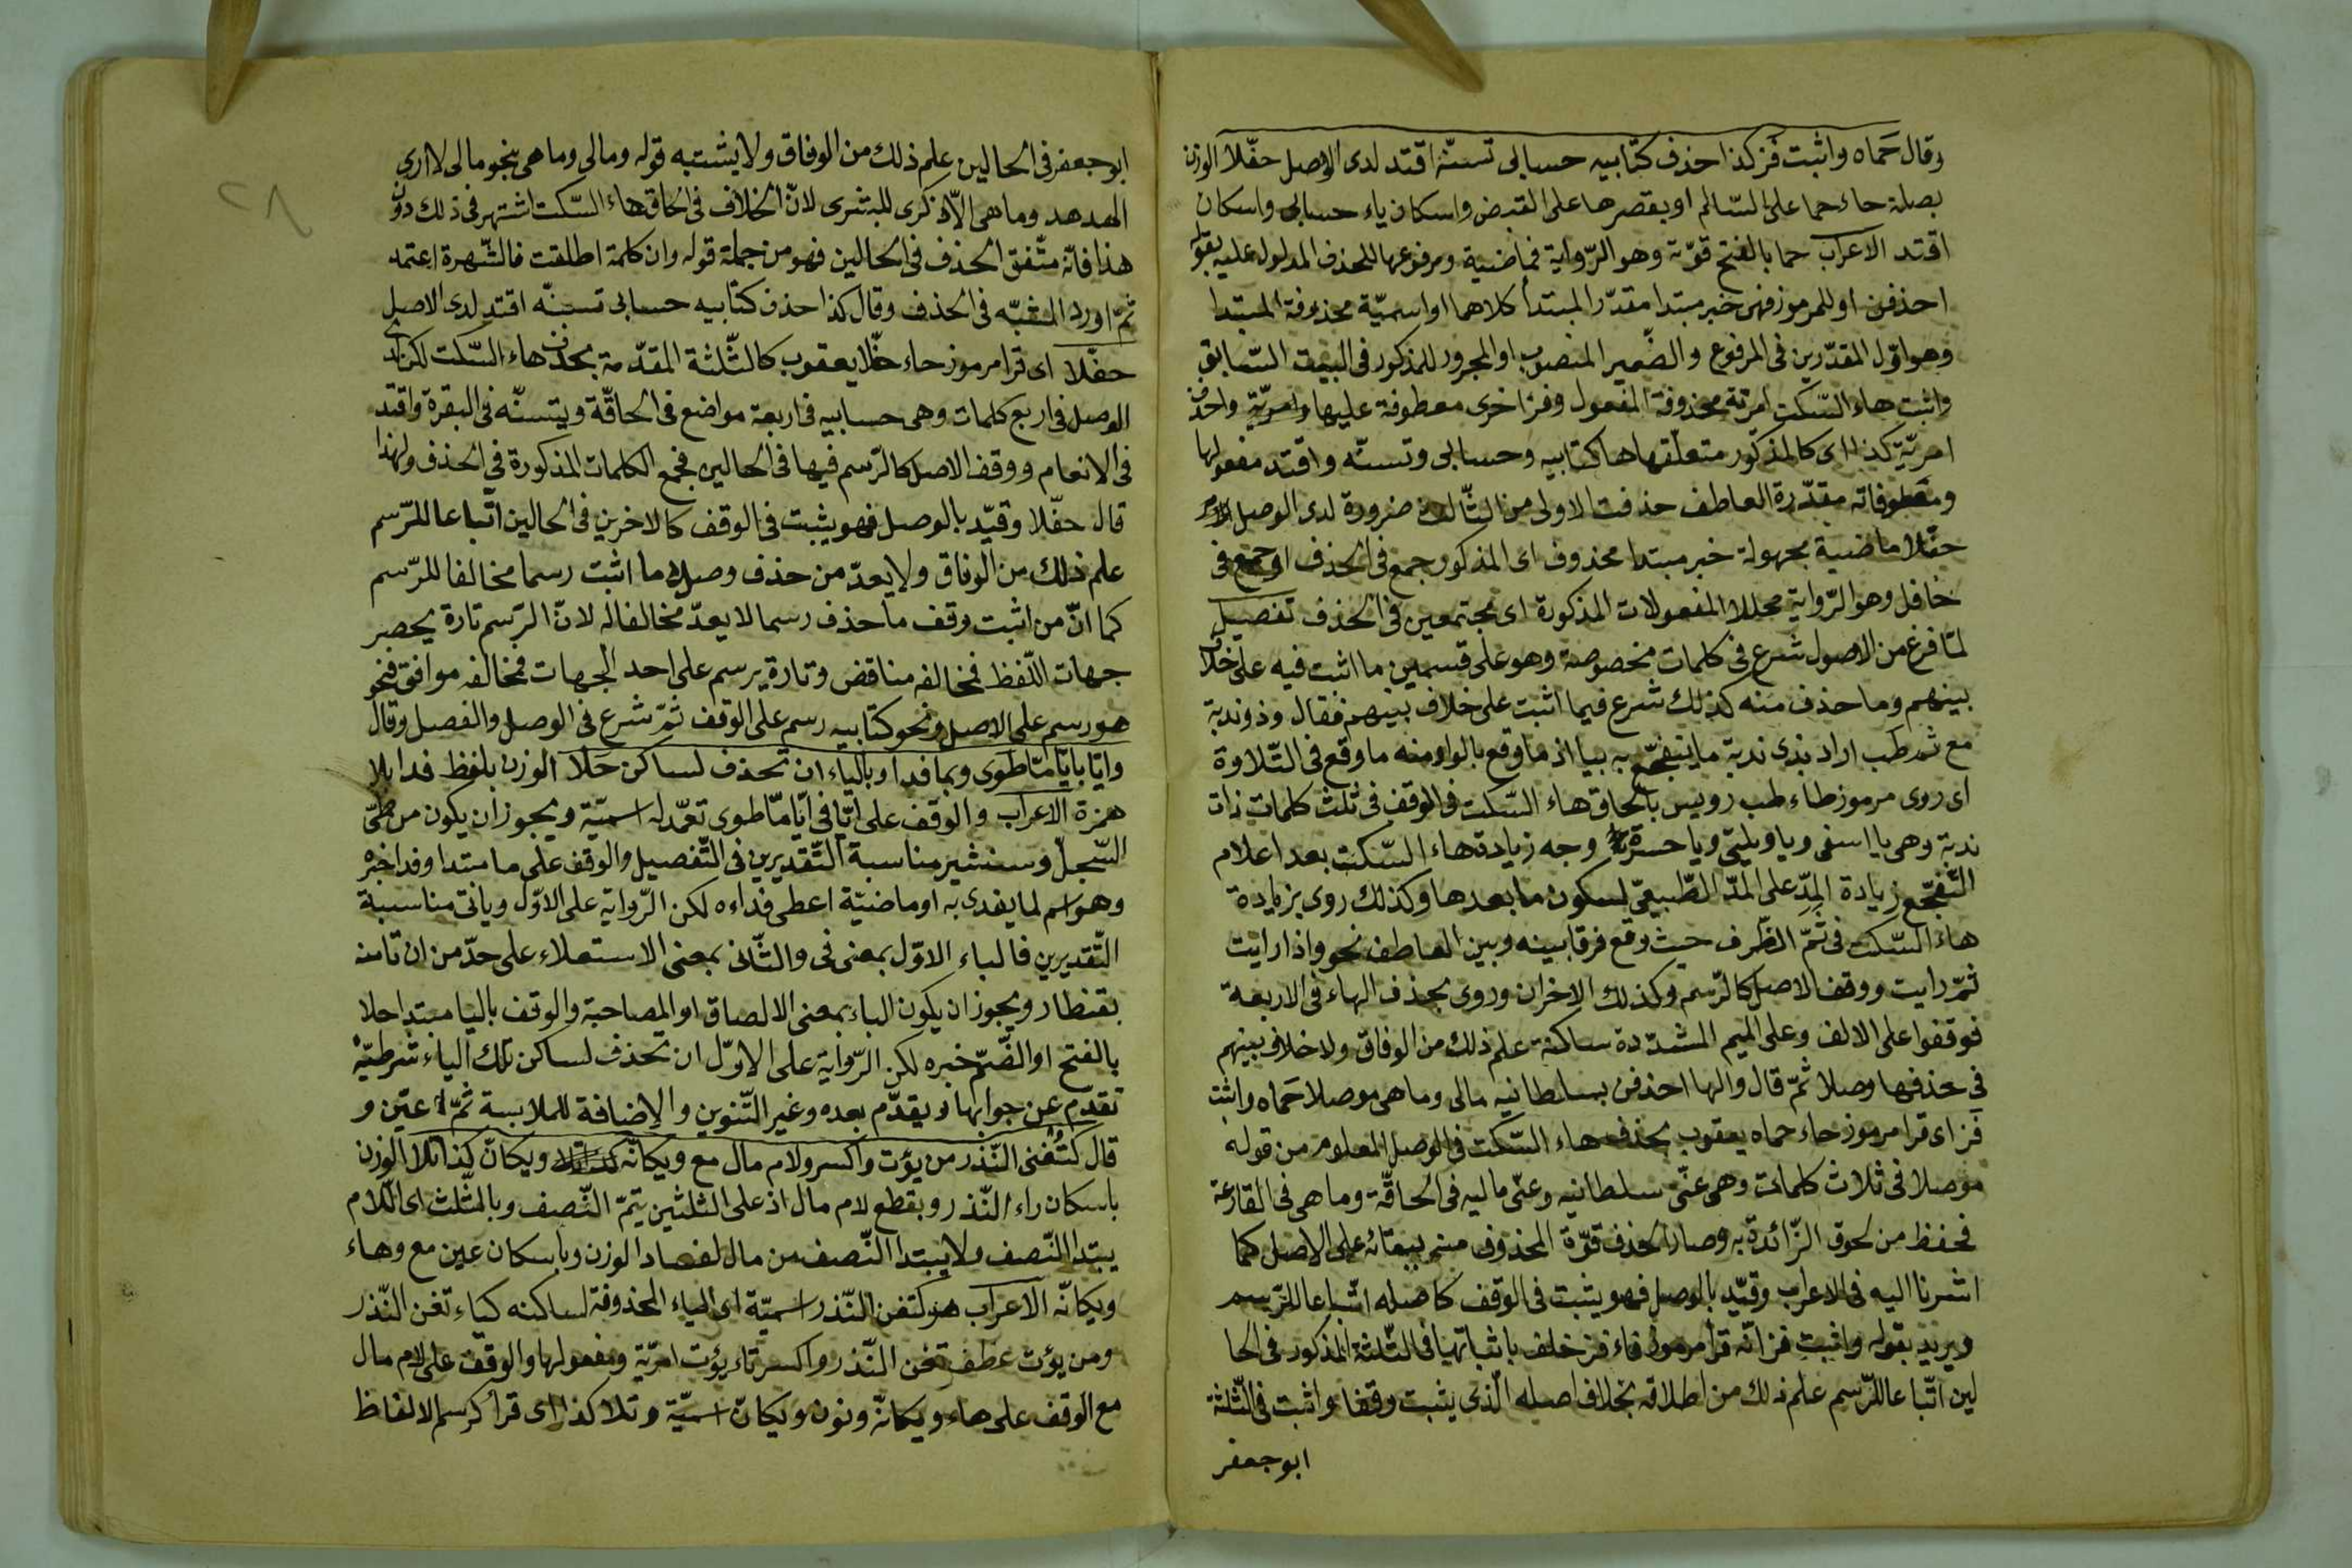 وقال حَماه واثبت فَز كذا احذف كتابيه حسابى تسنّه اقتد لدى الوصل حفّلا الوزن
بصلة حاء حما على السّالم او بقصرها على القبض واسكان ياء حسابى واسكان
اقتد الاعراب حما بالفتح قوّة وهو الرّواية فماضية ومرفوعها للحذف المدلول عليه بقوله
احذفن او للمرموز فهى خبر مبتدا مقدّر المبتدأ كلاهما او اسميّة محذوفة المبتدا
وهو اوّل المقدّرين فى المرفوع والضمير المنصوب او المجرور للمذكور فى البيت السّابق
واثبت هاء السّكت امريّة محذوفة المفعول وفز اخرى معطوفة عليها وامريّة واحذف
امريّة كذا اى كالمذكور متعلّقها ها كتابيه وحسابى وتسنّه واقتد مفعولها
ومعطوفاته مقدّرة العاطف حذفت الاولى من الثّالث ضرورة لدى الوصل
حفّلا ماضية مجهولة خبر مبتدا محذوف اى المذكور جمع فى الحذف او جمع فى
حافل وهو الرّواية محللا المفعولات المذكورة اى مجتمعين فى الحذف تفصيل
لمّا فرغ من الاصول شرع فى كلمات مخصوصة وهو على قسمين ما اثبت فيه على خلاف
بينهم وما حذف منه كذلك شرع فيما اثبت على خلاف بينهم فقال وذو ندبة
مع ثم طب اراد بذى ندبة ما يتفجّع به بيا اذ ما وقع بالواو منه ما وقع فى التلاوة
اى روى مرموز طاء طب رويس بالحاق هاء السّكت فى الوقف فى ثلث كلمات ذات
ندبة وهى يا اسفى ويا ويلتى ويا حسرتى وجه زيادة هاء السّكت بعد اعلام
التّفجّع زيادة المدّ على المدّ الطّبيعىّ لسكون ما بعدها وكذلك روى بزيادة
هاء السّكت فى ثَمّ الظّرف حيث وقع فرقا بينه وبين العاطف نحو واذا رايت
ثمّ رايت ووقف الاصل كالرّسم وكذلك الاخران وروى بحذف الهاء فى الاربعة
فوقفوا على الالف وعلى الميم المشدّدة ساكنة علم ذلك من الوفاق ولا خلاف بينهم
فى حذفها وصلا ثمّ قال والها احذفن بسلطانيه مالى وما هى موصلا حَماه واثبت
فَز اى قرا مرموز حاء حماه يعقوب بحذف هاء السّكت فى الوصل المعلوم من قوله
موصلا فى ثلاث كلمات وهى عنّى سلطانيه وعنّى ماليه فى الحاقّة وما هى فى القارعة
فحفظ من لحوق الزّائدة به وصار الحذف قوّة المحذوف منه ببقائه على الاصل كما
اشرنا اليه فى الاعراب وقيّد بالوصل فهو يثبت فى الوقف كاصله اتّباعا للرّسم
ويريد بقوله واثبت فز انّه قرا مرموز فاء فز خلف باثباتها فى الثّلثة المذكور فى الحا
لين اتّباعا للرّسم علم ذلك من اطلاقه بخلاف اصله الّذى يثبت وقفا واثبت فى الثّلثة
ابو جعفر
٢٨
ابو جعفر فى الحالين علم ذلك من الوفاق ولا يشتبه قوله ومالى وما هى بنحو مالى لا ارى
الهدهد وما هى الّا ذكرى للبشرى لانّ الخلاف فى الحاق هاء السّكت اشتهر فى ذلك دون
هذا فانّه متّفق الحذف فى الحالين فهو من جملة قوله وان كلمة اطلقت فالشّهرة اعتمد
ثمّ اورد المشبّه فى الحذف وقال كذا احذف كتابيه حسابى تسنّه اقتد لدى الاصل
حفّلا اى قرا مرموز حاء حفّلا يعقوب كالثّلثة المقدّمة بحذف هاء السّكت لكن لدى
الوصل فى اربع كلمات وهى حسابيه فى اربعة مواضع فى الحاقّة ويتسنّه فى البقرة واقتد
فى الانعام ووقف الاصل كالرّسم فيها فى الحالين فجمع الكلمات المذكورة فى الحذف ولهذا
قال حفّلا وقيّد بالوصل فهو يثبت فى الوقف كالاخرين فى الحالين اتّباعا للرّسم
علم ذلك من الوفاق ولا يعدّ من حذف وصلا ما اثبت رسما مخالفا للرّسم
كما انّ من اثبت وقف ما حذف رسما لا يعدّ مخالفا له لانّ الرّسم تارة يحصر
جهات اللّفظ فمخالفه مناقض وتارة يرسم على احد الجهات فمخالفه موافق فنحو
هو رسم على الاصل ونحو كتابيه رسم على الوقف ثمّ شرع فى الوصل والفصل وقال
وايّا بايّا مّا طوى وبما فدا وبالياء ان تحذف لساكن حَلا الوزن بلفظ فدا بلا
همزة الاعراب والوقف على ايّا فى ايّا مّا طوى تعمّد له اسميّة ويجوز ان يكون من طىّ
السّجلّ وسنشير مناسبة التّقديرين فى التّفصيل والوقف على ما مبتدا وفدا خبره
وهو اسم لما يفدى به او ماضيّة اعطى فداءه لكن الرّواية على الاوّل وياتى مناسبة
التّقديرين فالباء الاوّل بمعنى فى والثّانى بمعنى الاستعلاء على حدّ من ان تامنه
بقنطار ويجوز ان يكون الباء بمعنى الالصاق او المصاحبة والوقف باليا مبتدا حلا
بالفتح او الضّمّ خبره لكن الرّواية على الاوّل ان تحذف لساكن تلك الياء شرطيّة
تقدم عن جوابها او يقدّم بعده وغير التّنوين والاضافة للملابسة ثمّ عيّن و
قال كتُغنى النّذر من يؤت واكسر ولام مال مع ويكانّه ويكانّ كذا تلا الوزن
باسكان راء النّذر وبقطع لام مال اذ على الثلثين يتمّ النّصف وبالمثّلث اى اللّام
يبتدا النّصف ولا يبتدا النّصف من مال لفساد الوزن وباسكان عين مع وهاء
ويكانّه الاعراب هو كتغن النّذر اسميّة اى الياء المحذوفة لساكنه كياء تغن النّذر
ومن يؤت عطف تغن النّذر واكسر تاء يؤت امريّة ومفعولها والوقف على لام مال
مع الوقف على هاء ويكانّه ونون ويكانّ اسميّة وتلا كذا اى قرا كرسم الالفاظ